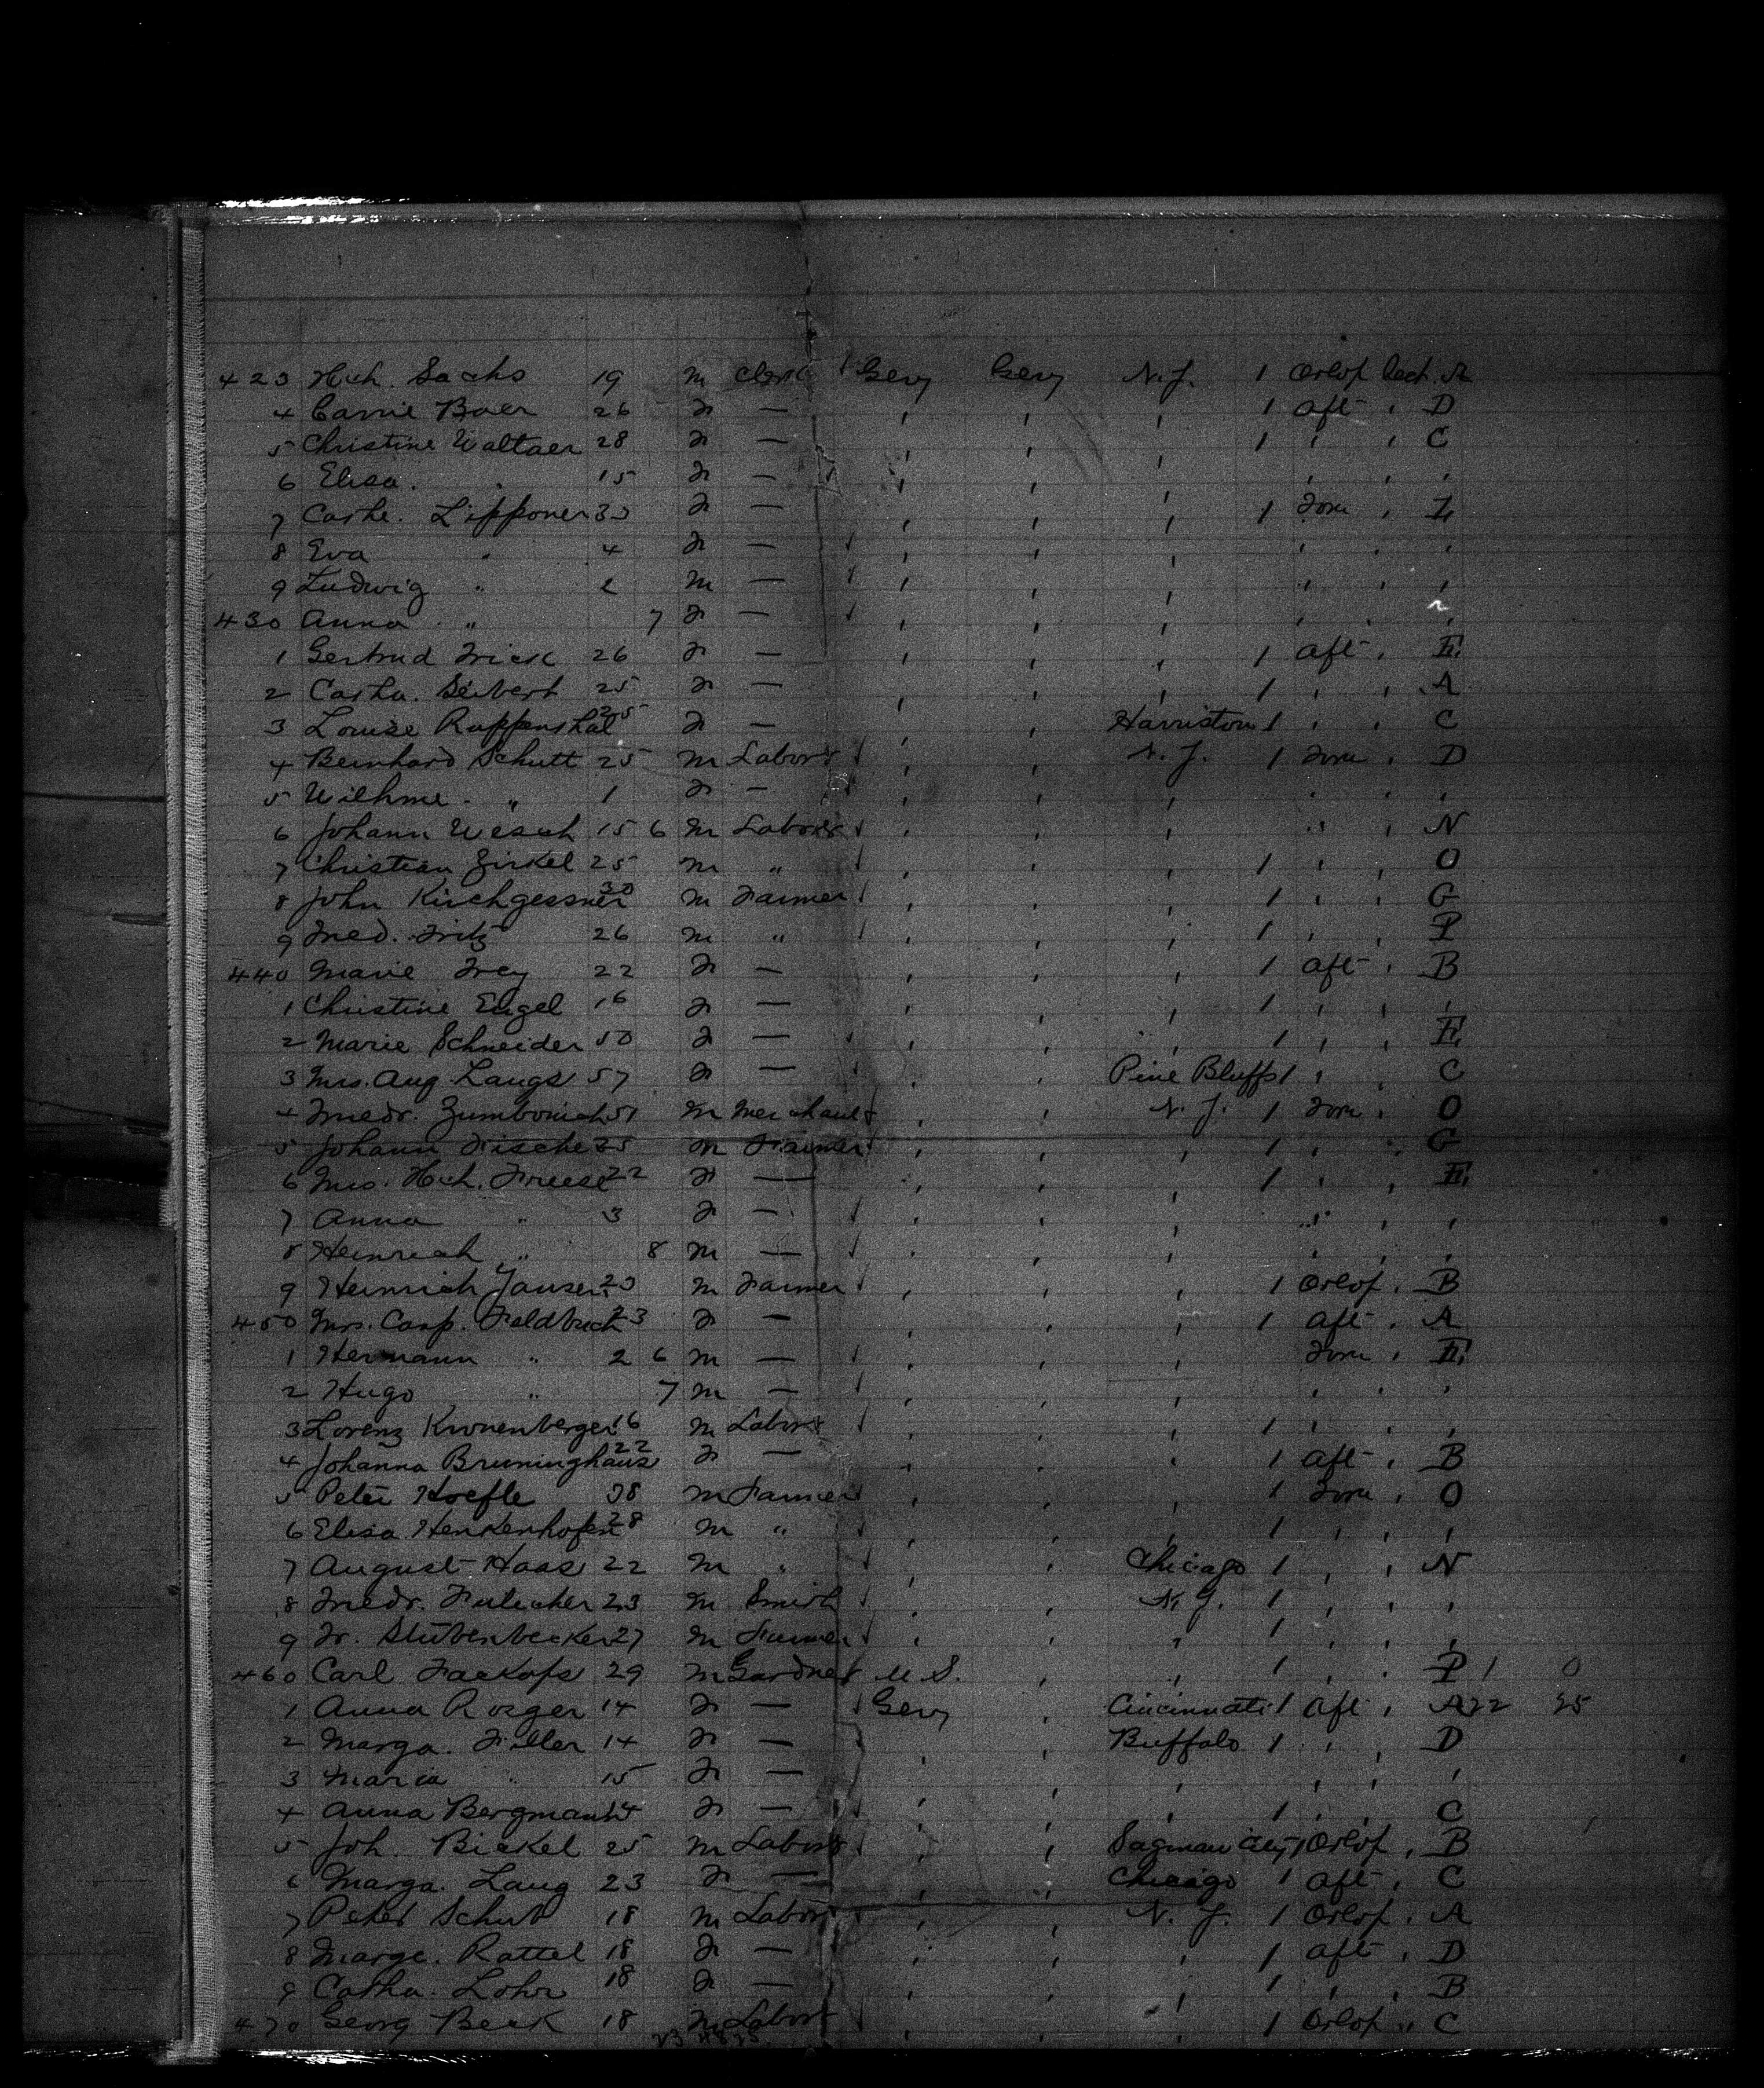 423 Hch. Sachs 19 m Clerk Gery Gery N.Y. 1 Orlop Sect. A
4 Carrie Baer 26 F — , , , 1 aft , D
5 Christine Waltaer 28 F — , , , 1 , , C
6 Elisa. " 15 F — , , , , , ,
7 Cathe. Lipponer 33 F — , , , 1 Fore , L
8 Eva " 4 F — , , , , , ,
9 Ludwig " 2 m — , , , , , ,
430 Anna " 7 F — , , , , , ,
1 Gertrud Frick 26 F — , , , 1 aft , E
2 Catha. Seibert 25 F — , , , 1 , , A
3 Louise Ruppenthal 25 F — , , Harriston 1 , , C
4 Bernhard Schutt 25 m Labor , , N.Y. 1 Fore , D
5 Wilhme. " 1 F — , , , , , ,
6 Johann Wesch 15 6 m Labor , , , " , N
7 Christian Zirkel 25 m " , , , 1 , , O
8 John Kirchgessner 30 m Farmer , , , 1 , , G
9 Fred. Fritz 26 m " , , , 1 , , P
440 Marie Frey 22 F — , , , 1 aft , B
1 Christine Engel 16 F — , , , 1 , , ,
2 Marie Schneider 50 F — , , , 1 , , E
3 Mrs. Aug. Langs 57 F — , , Pine Bluffs 1 , , C
4 Friedr. 51 m Merchant , , N.Y. 1 Fore , O
5 Johann Fischer 25 m Farmer , , , 1 , , G
6 Mrs. Hch. Freese 22 F — , , , 1 , , E
7 Anna " 3 F — , , , " , ,
8 Heinrich " 8 m — , , , , , ,
9 Heinrich Jansen 23 m Farmer , , , 1 Orlop , B
450 Mrs. Casp. Feldbuck 23 F — , , , 1 aft , A
1 Hermann " 2 6 m — , , , Fore , E
2 Hugo " 7 m — , , , , , ,
3 Lorenz Kronenberger 16 m Labor , , , 1 , , ,
4 Johanna Bruninghaus 22 F — , , , 1 aft , B
5 Peter Hoefle 38 m Farmer , , , 1 Fore , O
6 Elisa Henkenhofen 28 m " , , , 1 , , ,
7 August Haas 22 m " , , Chicago 1 , , N
8 Friedr. 23 m Smith , , N.Y. 1 , , ,
9 Fr. Stubenbecker 27 m Farmer , , , 1 , , ,
460 Carl 29 m Gardner U.S. , , 1 , , P 1 0
1 Anna Rosger 14 F — Gery , Cincinnati 1 aft , A 22 25
2 Marga. Filler 14 F — , , Buffalo 1 , , D
3 Maria " 15 F — , , , , , ,
4 Anna Bergmann 14 F — , , , 1 , , C
5 Joh. Bickel 25 m Labor , , Saginaw City 1 Orlop , B
6 Marga. Laug 23 F — , " Chicago 1 aft , C
7 Peter Schub 18 m Labor , , N.Y. 1 Orlop , A
8 Marge. Rattel 18 F — , , , 1 aft , D
9 Catha. Lohr 18 F — , , , 1 , , B
470 Georg Beck 18 m Labor , , , 1 Orlop " C